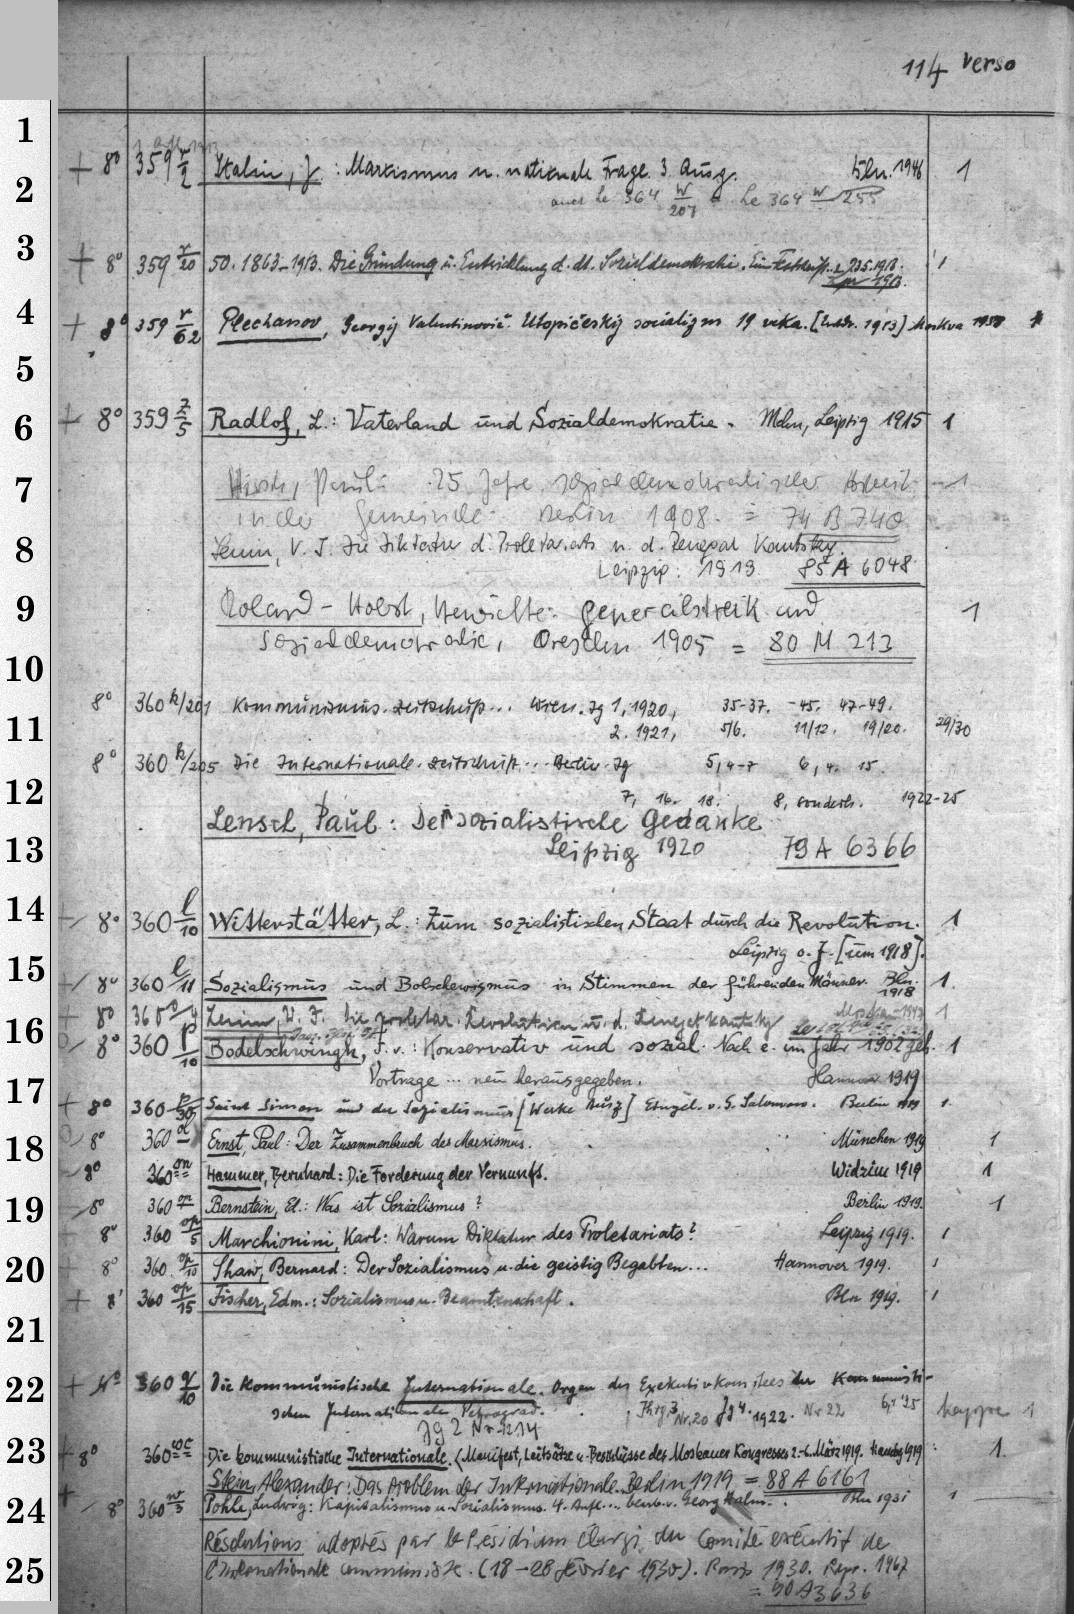 114 verso
1
+ 8° 359 r/2 Stalin, J.: Marxismus u. nationale Frage. 3. Ausg. Bln. 1946 1
2
auch Le 364 w/207 = Le 364 w/255
3
+ 8° 359 r/20 50. 1863-1913. Die Gründung u. Entwicklung d. dt. Sozialdemokratie. Eine Festschrift. 1913. 1
4
+ 8° 359 r/62 Plechanov, Georgij Valentinovič. Utopičeskij socializm 19 veka. 1913] Moskva 1958 1
5
6
+ 8° 359 z/5 Radlof, L.: Vaterland und Sozialdemokratie. Mchn, Leipzig 1915 1
7
Hirsch, Paul: 25 Jahre sozialdemokratischer Arbeit 1
in der Gemeinde. Berlin 1908. = 74 B 740
8
Lenin, V. I. Die Diktatur d. Proletariats u. d. Renegat Kautsky.
Leipzig: 1919 85 A 6048
9
Roland-Holst, Henriette: Generalstreik und 1
Sozialdemokratie, Dresden 1905 = 80 M 213
10
8° 360 k/201 Kommunismus. Zeitschrift... Wien. Jg 1, 1920, 35-37. -45. 47-49.
11
2. 1921, 5/6. 11/12. 19/20. 29/30
8° 360 k/205 Die Internationale. Zeitschrift... Berlin. Jg 5, 4-7 6, 4. 15.
12
7, 16. 18. 8, sonderh. 1922-25
Lensch, Paul: Der sozialistische Gedanke
13
Leipzig 1920 79 A 6366
14
8° 360 l/10 Witterstätter, L.: Zum sozialistischen Staat durch die Revolution. 1
Leipzig o. J. [um 1918].
15
8° 360 l/11 Sozialismus und Bolschewismus in Stimmen der führenden Männer. Bln. 1918 1.
+ 8° Lenin, W. I. Die proletar. Revolution u. d. Renegat Kautsky 1
16
8° 360 p/10 Bodelschwingh, F. v.: Konservativ und sozial. Nach e. im Jahr 1902 geh. 1
Vortrage ... neu herausgegeben. Hannover 1919
17
+ 8° 360 Saint Simon und der Sozialismus [Werke Ausz] Eingel. v. G. Salomon. Berlin 1919 1.
18
8° 360 Ernst, Paul: Der Zusammenbruch des Marxismus. München 1919 1
8° 360 on Hammer, Bernhard: Die Forderung der Vernunft. 1919 1
19
8° 360 Bernstein, Ed.: Was ist Sozialismus? Berlin 1919. 1
8° 360 op/5 Marchionini, Karl: Warum Diktatur des Proletariats? Leipzig 1919. 1
20
8° 360 op/10 Shaw, Bernard: Der Sozialismus u. die geistig Begabten... Hannover 1919. 1
+ 8° 360 op/15 Fischer, Edm.: Sozialismus u. Beamtenschaft. Bln 1919. 1
21
22
+ 4° 360 q/10 Die Kommunistische Internationale. Organ des Exekutivkomitees der Kommunisti-
schen Internationale Petrograd. Jhrg 3, Nr. 20 Jg 4. 1922. Nr 22 Kappe 1
Jg 2 Nr.
23
+ 8° 360 Die kommunistische Internationale. (Manifest, Leitsätze u. Beschlüsse des Moskauer Kongresses 2.-6. März 1919. Hamburg 1919 1.
Stein, Alexander: Das Problem der Internationale. Berlin 1919 = 88 A 6161
24
8° 360 w/3 Pohle, Ludwig: Kapitalismus u. Sozialismus. 4. Aufl... bearb. v. Georg Halm. Bln 1931 1
Résolutions adoptés par le Présidium élargi du Comité exécutif de
25
l'Internationale communiste. (18-28 février 1930). Paris 1930. Repr. 1967
= 90 A 3636